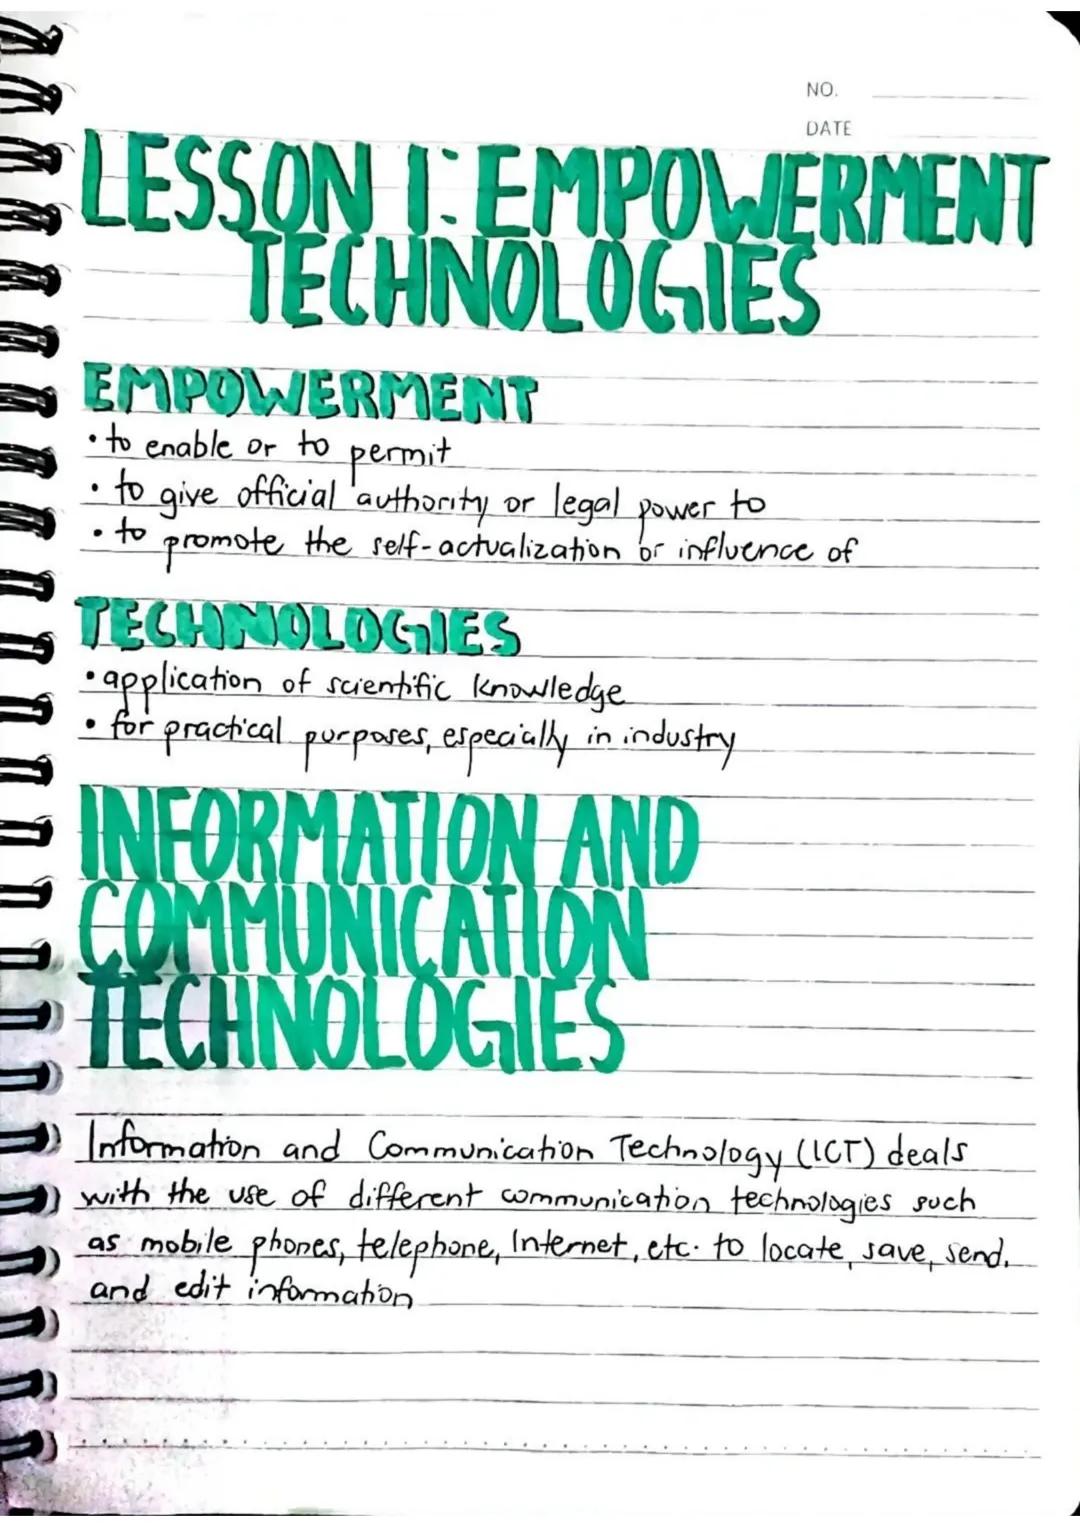 NO.
DATE
LESSON 1: EMPOWERMENT
TECHNOLOGIES
EMPOWERMENT
• to enable or to permit
• to give official authority or legal power to
• to promote the self-actualization or influence of
TECHNOLOGIES
• application of scientific knowledge
• for practical purposes, especially in industry
INFORMATION AND
COMMUNICATION
TECHNOLOGIES
Information and Communication Technology (ICT) deals
with the use of different communication technologies such
as mobile phones, telephone, Internet, etc. to locate, save, send,
and edit information